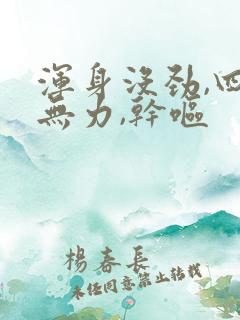 渾身沒勁,四
無力,幹嘔
楊春長
未經同意禁止轉載